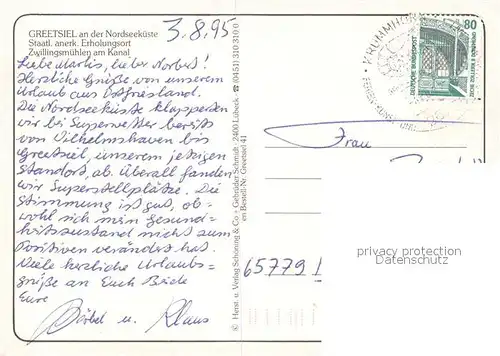 GREETSIEL an der Nordseeküste
Staatl. anerk. Erholungsort
Zwillingsmühlen am Kanal
3.8.95
Liebe Marlis, lieber Norbert!
Herzliche Grüße von unserem
Urlaub aus Ostfriesland.
Die Nordseeküste klapperten
wir bei Superwetter bereits
von Wilhelmshaven bis
Greetsiel, unserem jetzigen
Standort, ab. Überall fanden
wir Superstellplätze. Die
Stimmung ist gut, ob-
wohl sich mein Gesund=
heitszustand nicht zum
Positiven verändert hat.
Viele herzliche Urlaubs=
grüße an Euch Beide
Eure
Bärbel u. Klaus
© Herst. u. Verlag Schöning & Co + Gebrüder Schmidt 2400 Lübeck ☎ (0451) 310 310 0
Best-Nr. Greetsiel 41
KRUMMHÖRN
80
DEUTSCHE BUNDESPOST
Frau
65779
privacy protection
Datenschutz